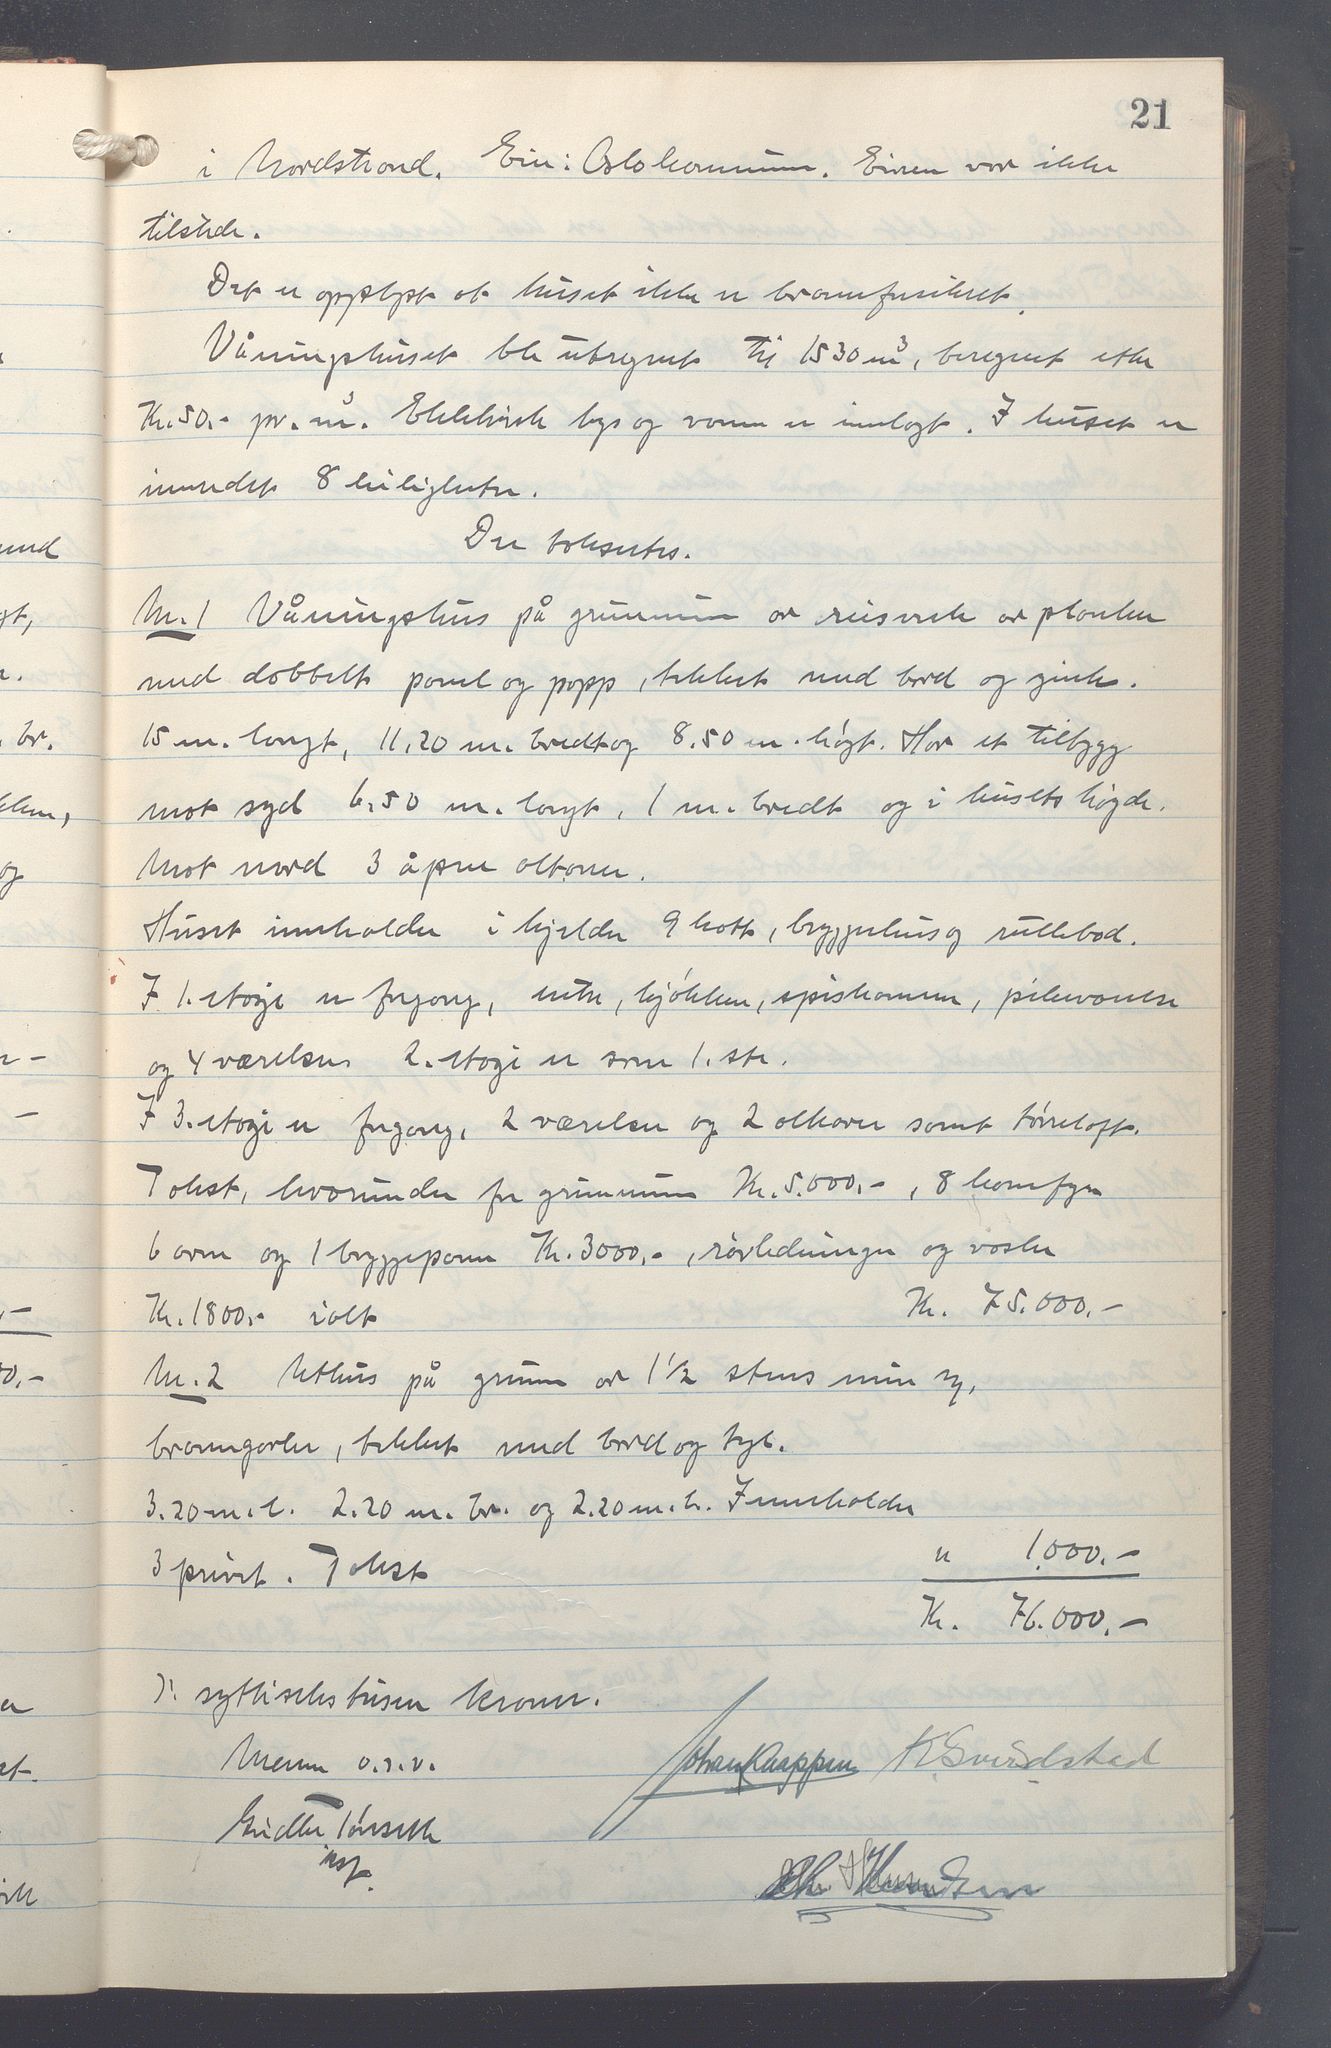 21
i Nordstrand. Eier: Oslo kommune. Eieren var ikke
tilstede.
Det er opplyst at huset ikke er brannforsikret.
Våningshuset ble utregnet til 1530 m³, beregnet etter
Kr. 50.- pr. m³. Elektrisk lys og varme er innlagt. I huset er
innredet 8 leiligheter.
Der takseres.
Nr. 1 Våningshus på grunnmur av reisverk av planker
med dobbelt panel og papp, tekket med bord og zink.
15 m. langt, 11.20 m. bredt og 8.50 m. høgt. Har et tilbygg
mot syd 6.50 m. langt, 1 m. bredt og i husets høgde.
Mot nord 3 åpne altaner.
Huset inneholder i kjelder 9 kott, bryggerhus og rullebod.
I 1. etage er frgang, entre, kjøkken, spiskammer, pikeværelse
og 4 værelser 2. etage er som 1. ste.
I 3. etage er frgang, 2 værelser og 2 alkover samt tørreloft.
Takst, hvorunder for grunnmuren Kr. 5.000.-, 8 komfyrer
6 ovner og 1 bryggepanne Kr. 3000.-, rørledninger og vasker
Kr. 1800.- ialt Kr. 75.000.-
Nr. 2 Uthus på grunn av 1½ stens mur
branngavler, tekket med bord og tgl.
3.20 m. l. 2.20 m. br. og 2.20 m. h. Inneholder
3 privet. Takst " 1.000.-
Kr. 76.000.-
syttisekstusen kroner.
Menn o.s.v. Johan Kaappen K. Sverdstad
Tønseth
insp.